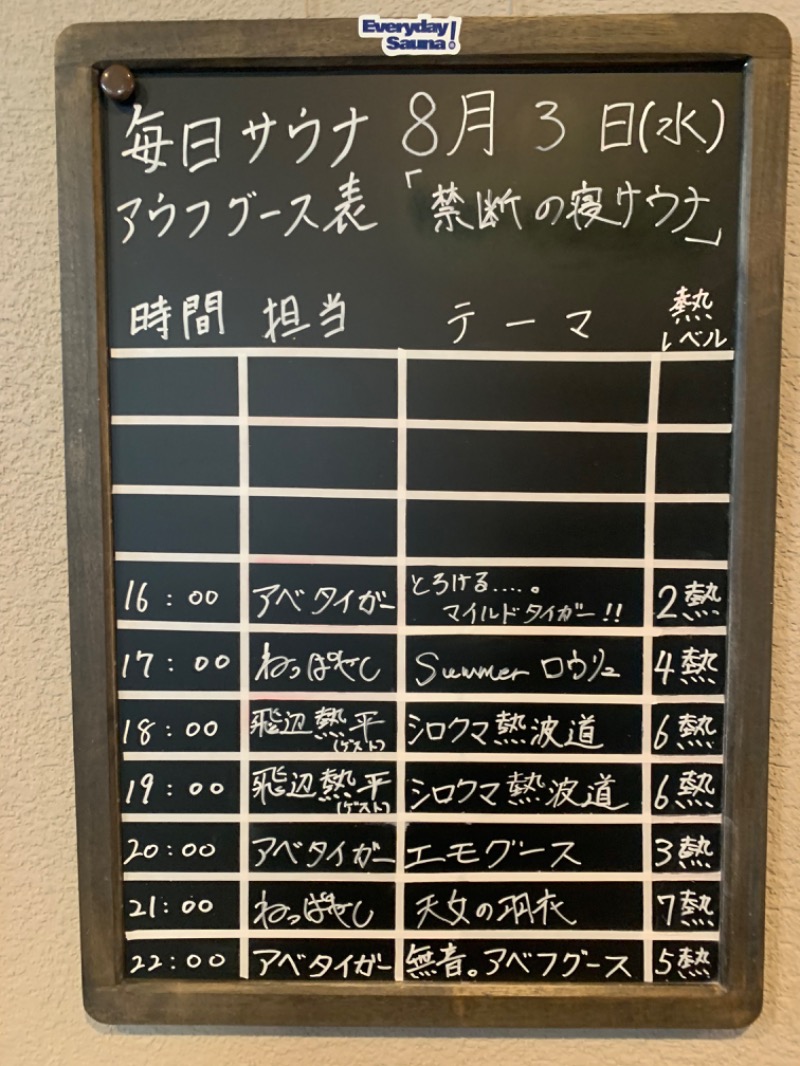 Everyday
Sauna!
毎日サウナ 8月 3 日(水)
アウフグース表「禁断の寝サウナ」
時間 担当 テーマ 熱
レベル
16:00 アベタイガー とろける....。 2熱
マイルドタイガー!!
17:00 ねっぱせし Summer ロウリュ 4熱
18:00 飛辺熱平 シロクマ熱波道 6熱
(ゲスト)
19:00 飛辺熱平 シロクマ熱波道 6熱
(ゲスト)
20:00 アベタイガー エモグース 3熱
21:00 ねっぱせし 天女の羽衣 7熱
22:00 アベタイガー 無音。アベフグース 5熱